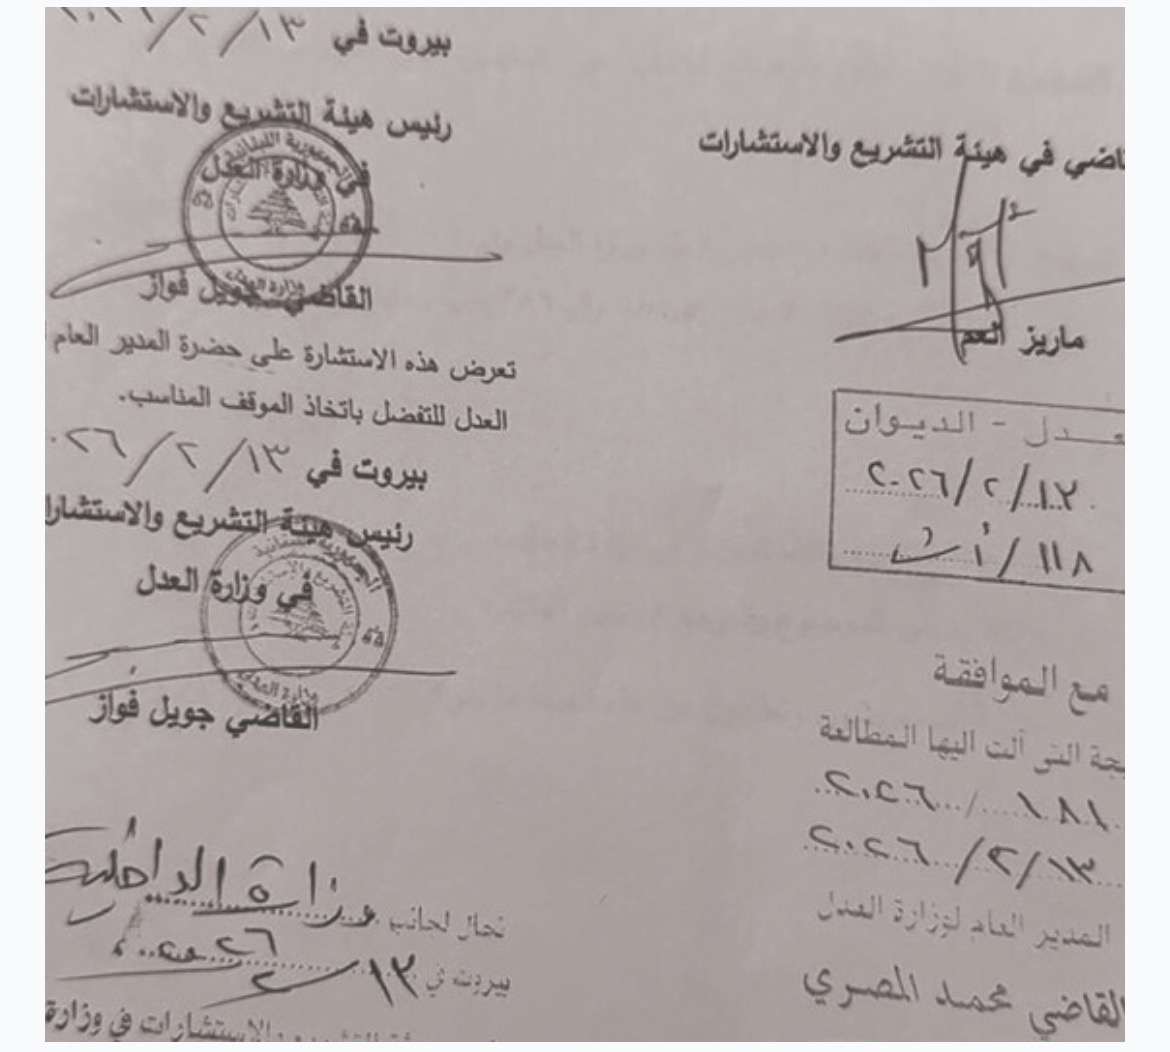 بيروت في ١٣/٢/٢٠٢٦
رئيس هيئة التشريع والاستشارات
في وزارة العدل
الجمهورية اللبنانية
وزارة العدل
القاضي جويل فواز
تعرض هذه الاستشارة على حضرة المدير العام
العدل للتفضل باتخاذ الموقف المناسب.
بيروت في ١٣/٢/٢٠٢٦
رئيس هيئة التشريع والاستشارا
في وزارة العدل
القاضي جويل فواز
تحال لجانب وزارة الداخلية
بيروت في ١٣
والاستشارات في وزارة
اضي في هيئة التشريع والاستشارات
ماريز العم
عدل - الديوان
١٣/٢/٢٠٢٦
١١٨/أ ت
مع الموافقة
يجة التي آلت اليها المطالعة
١٨١/٢٠٢٦
١٣/٢/٢٠٢٦
المدير العام لوزارة العدل
القاضي محمد المصري